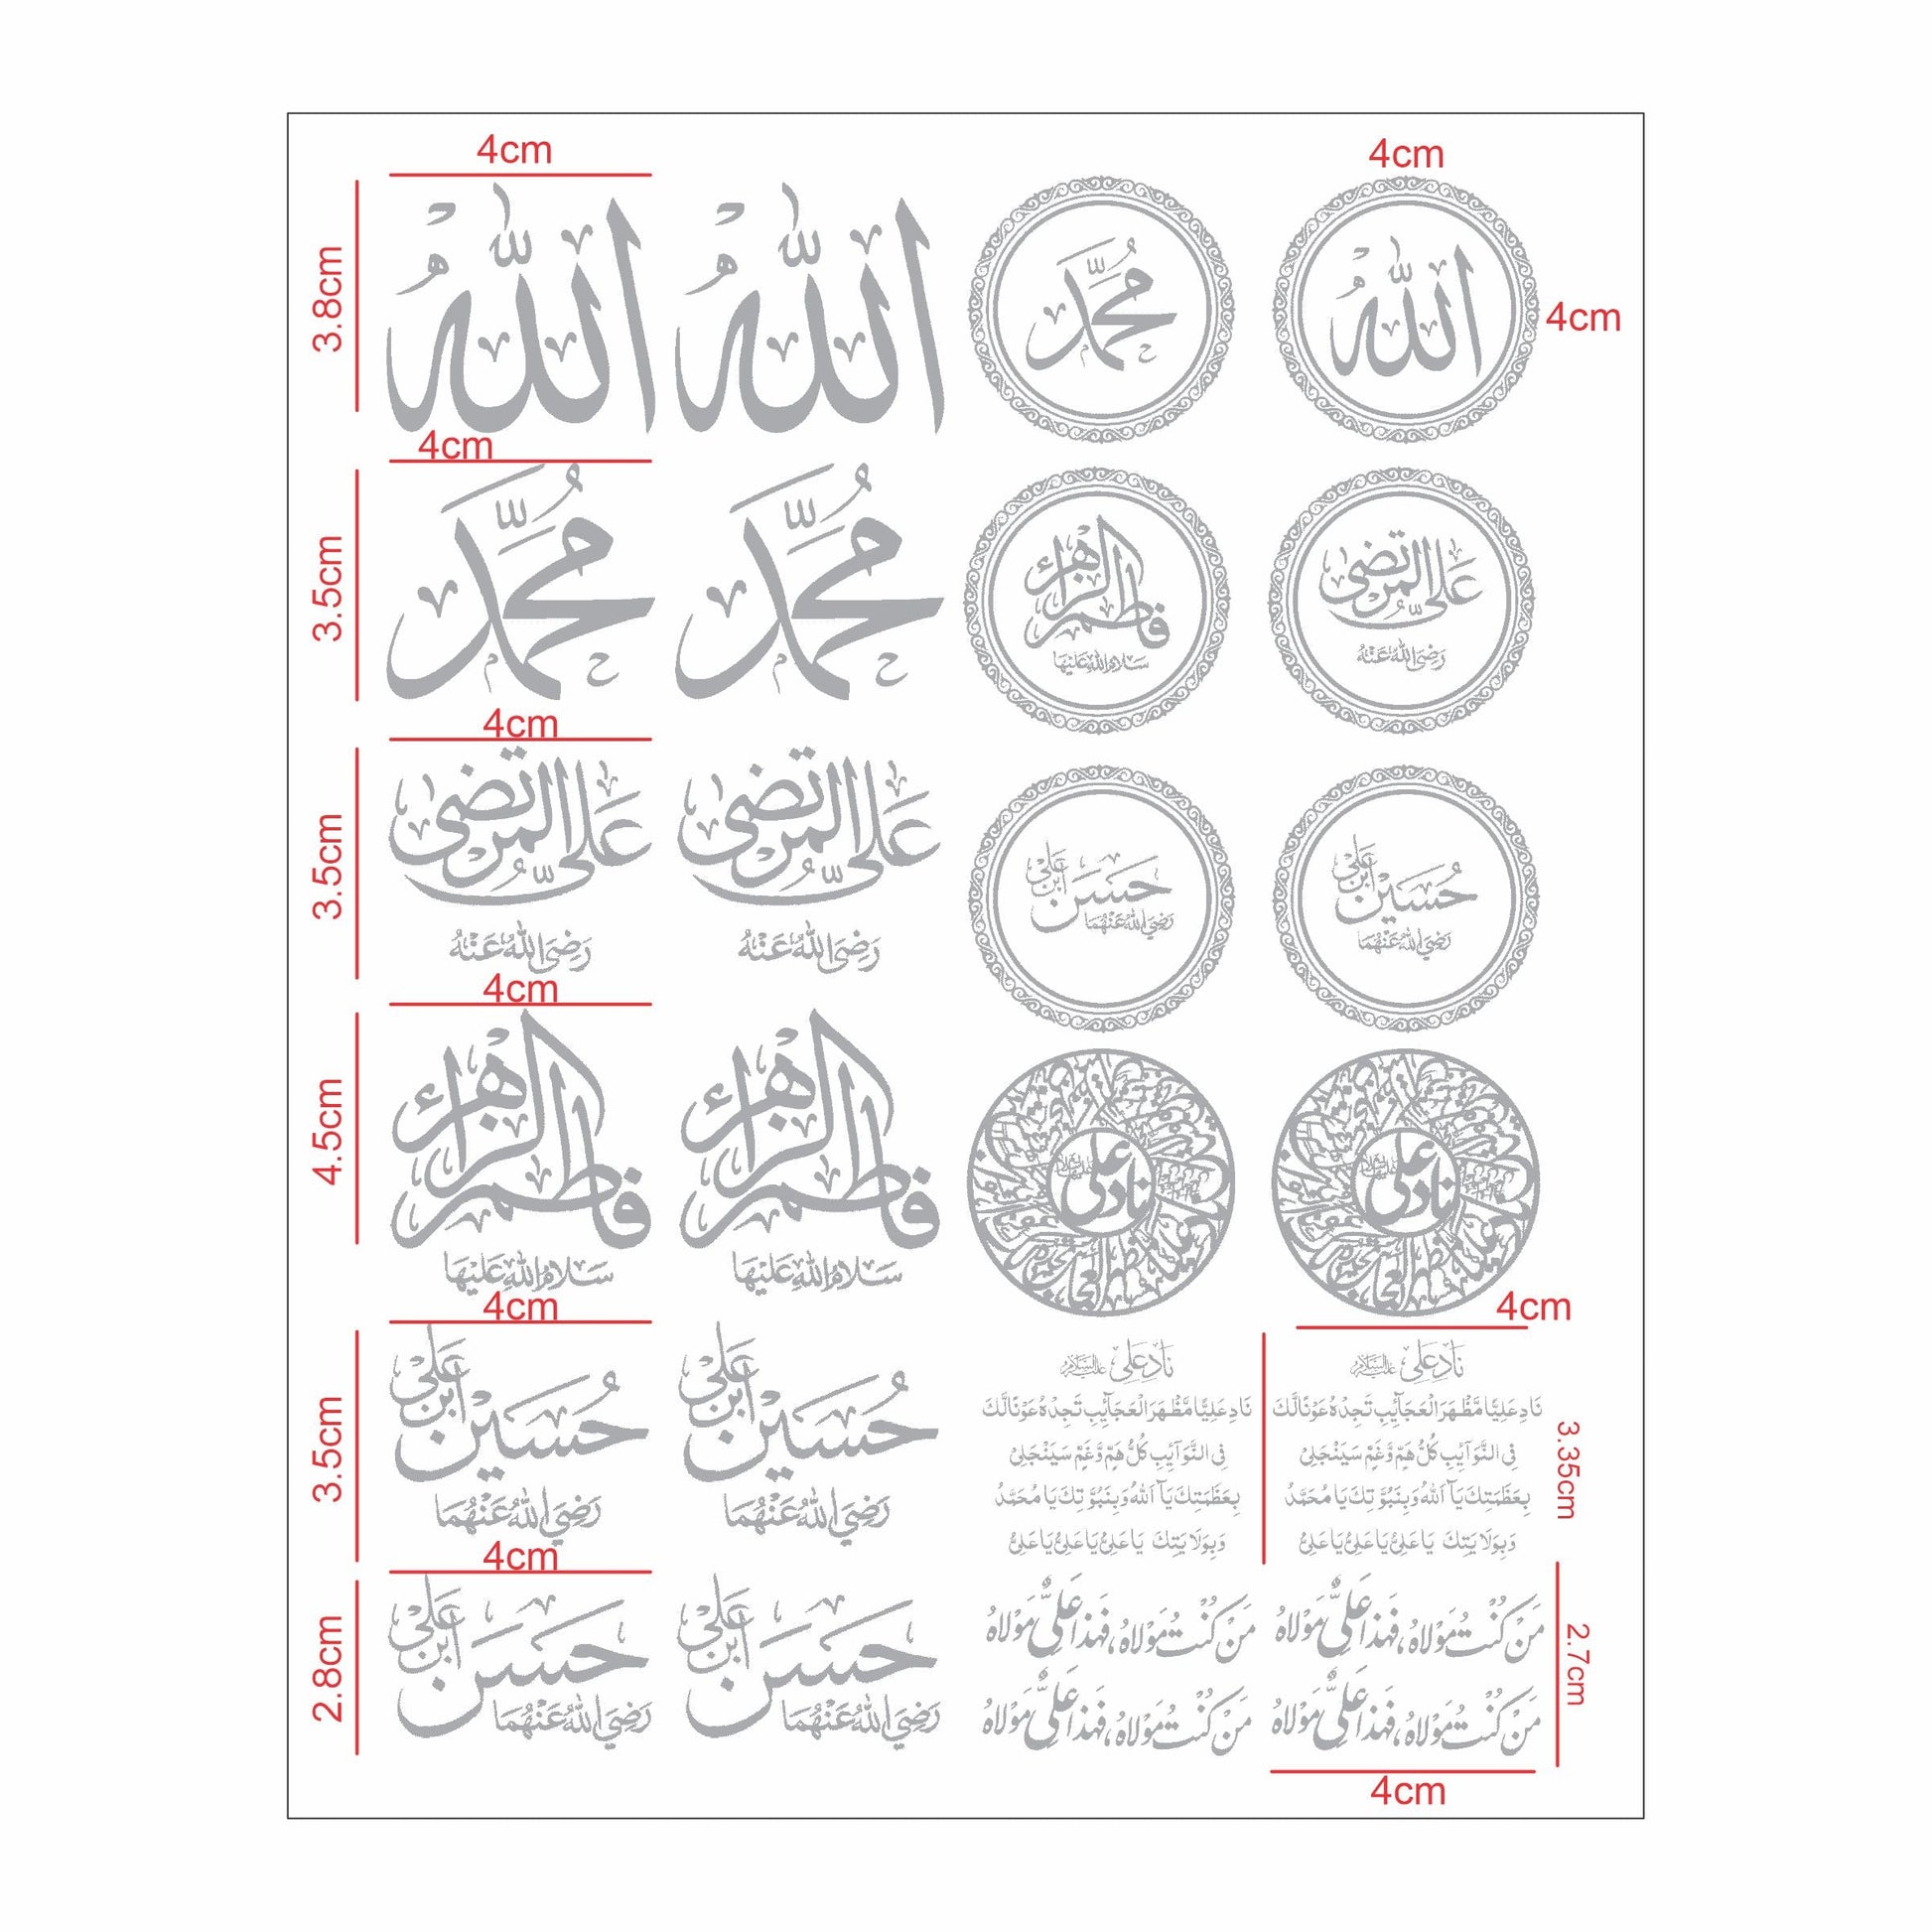 4cm
4cm
3.8cm
الله
الله
محمد
الله
4cm
4cm
3.5cm
محمد
محمد
فاطمة الزهراء
سلام الله عليها
علي المرتضى
رضي الله عنه
4cm
3.5cm
علي المرتضى
رضي الله عنه
علي المرتضى
رضي الله عنه
حسن ابن علي
رضي الله عنهما
حسين ابن علي
رضي الله عنهما
4cm
4.5cm
فاطمة الزهراء
سلام الله عليها
فاطمة الزهراء
سلام الله عليها
ناد علي
ناد علي
4cm
4cm
3.5cm
حسين ابن علي
رضي الله عنهما
حسين ابن علي
رضي الله عنهما
ناد علی علیہ السلام
نَادِ عَلِيًّا مَّظْهَرَ الْعَجَآئِبِ تَجِدْهُ عَوْنًا لَّكَ
فِی النَّوَآئِبِ كُلُّ هَمٍّ وَّغَمٍّ سَيَنْجَلِیْ
بِعَظَمَتِكَ يَآ اَللهُ وَبِنَبُوَّتِكَ يَا مُحَمَّدُ
وَبِوَلَايَتِكَ يَا عَلِیُّ يَا عَلِیُّ يَا عَلِیُّ
ناد علی علیہ السلام
نَادِ عَلِيًّا مَّظْهَرَ الْعَجَآئِبِ تَجِدْهُ عَوْنًا لَّكَ
فِی النَّوَآئِبِ كُلُّ هَمٍّ وَّغَمٍّ سَيَنْجَلِیْ
بِعَظَمَتِكَ يَآ اَللهُ وَبِنَبُوَّتِكَ يَا مُحَمَّدُ
وَبِوَلَايَتِكَ يَا عَلِیُّ يَا عَلِیُّ يَا عَلِیُّ
3.35cm
4cm
2.8cm
حسن ابن علي
رضي الله عنهما
حسن ابن علي
رضي الله عنهما
مَنْ كُنْتُ مَوْلَاهُ، فَهٰذَا عَلِیٌّ مَوْلَاهُ
مَنْ كُنْتُ مَوْلَاهُ، فَهٰذَا عَلِیٌّ مَوْلَاهُ
مَنْ كُنْتُ مَوْلَاهُ، فَهٰذَا عَلِیٌّ مَوْلَاهُ
مَنْ كُنْتُ مَوْلَاهُ، فَهٰذَا عَلِیٌّ مَوْلَاهُ
2.7cm
4cm